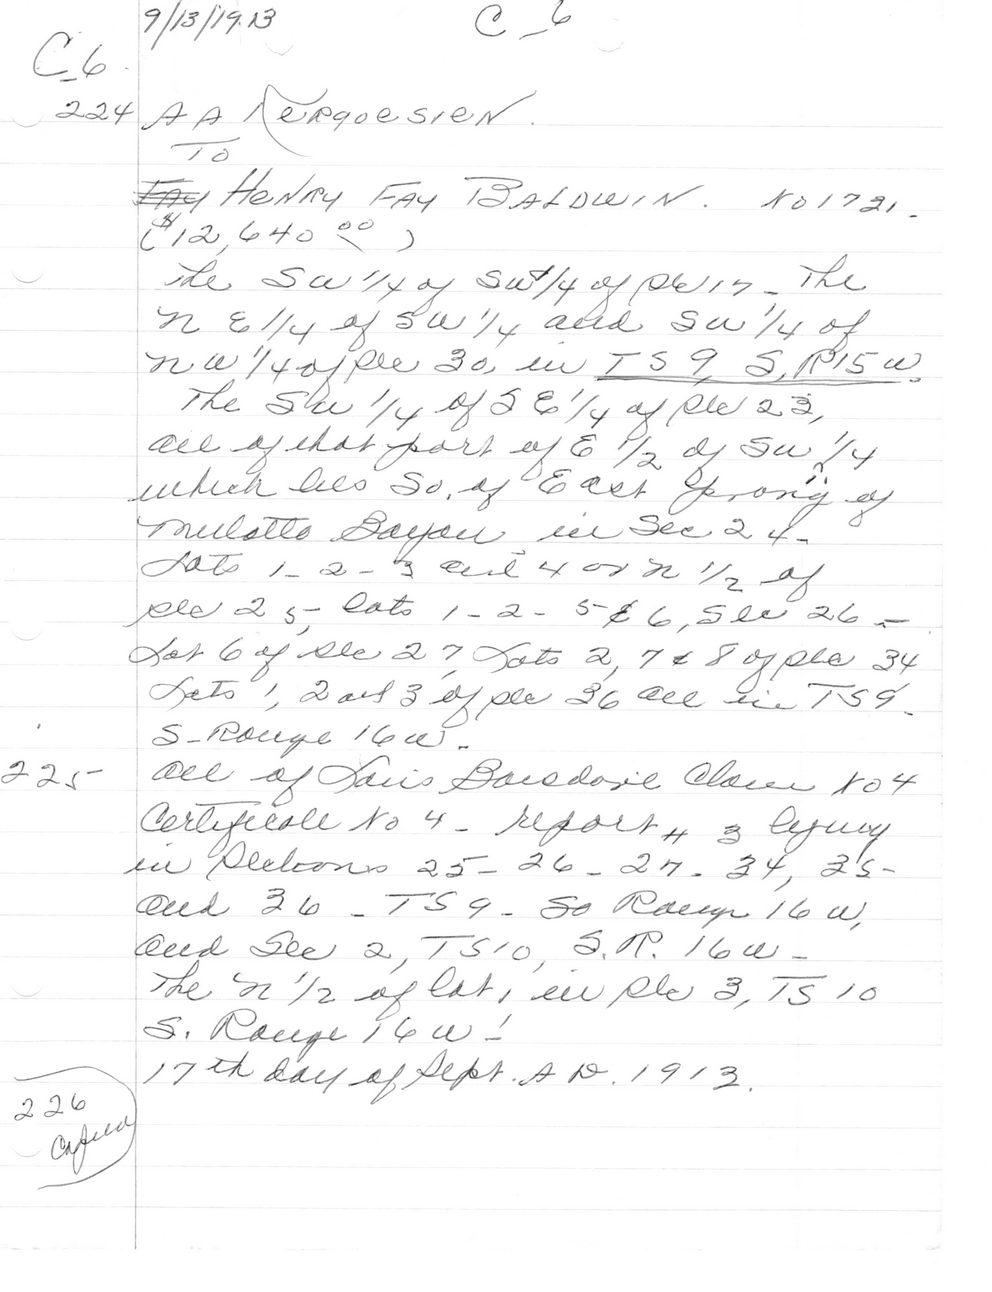 9/13/1913 C-6
C-6.
224 A A Kergoesien.
To
Fay Henry Fay Baldwin. No 1721.
($12,640 00)
The SW 1/4 of SW 1/4 of sec 17 - The
N E 1/4 of SW 1/4 and SW 1/4 of
NW 1/4 of sec 30, in TS 9, S, R 15 W.
The SW 1/4 of S E 1/4 of sec 23,
all of that part of E 1/2 of SW 1/4
which lies So. of "East Prong" of
Mulatto Bayou in Sec 24-
Lots 1-2-3 and 4 or N 1/2 of
sec 25, lots 1-2-5 & 6, Sec 26-
Lot 6 of sec 27, Lots 2, 7 & 8 of sec 34
Lots 1, 2 and 3 of sec 36 all in TS 9-
S-Range 16 W-
225 All of Louis Claim No 4
Certificate No 4 - report # 3 lying
in Sections 25-26-27-34, 35-
and 36 - TS 9 - So Range 16 W,
and Sec 2, TS 10, S.R. 16 W-
The N 1/2 of lot 1 in sec 3, TS 10
S. Range 16 W-
17th day of Sept. A D. 1913.
226
Copied